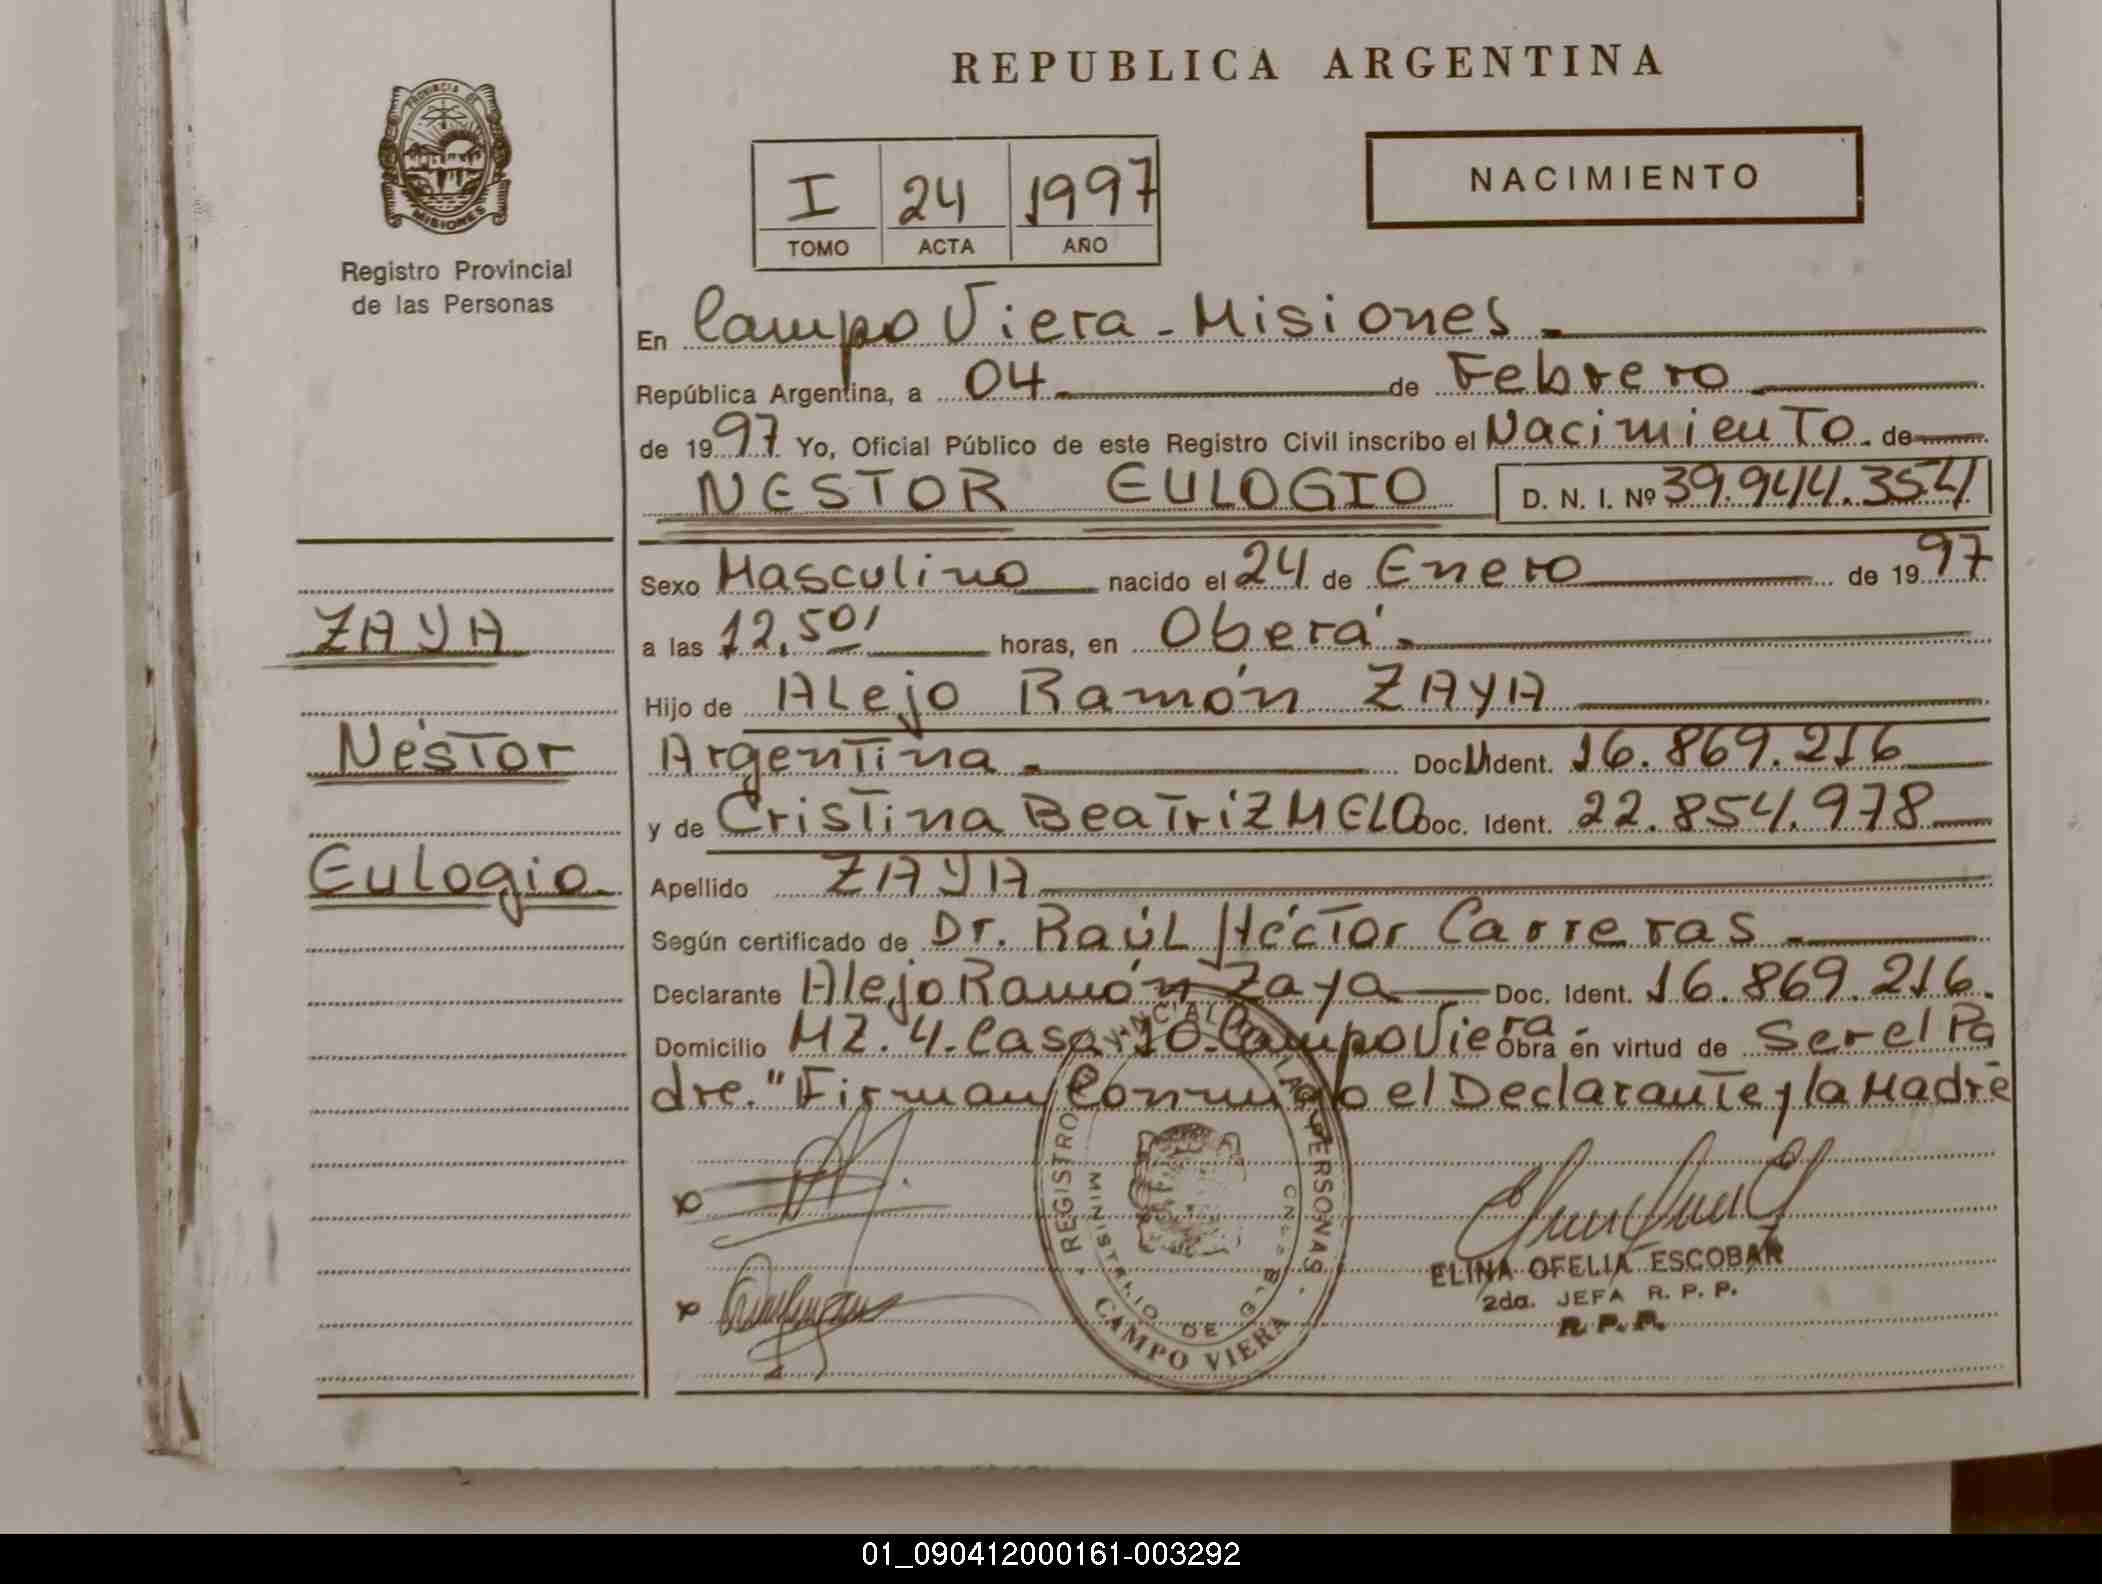 REPUBLICA ARGENTINA
PROVINCIA DE
MISIONES
Registro Provincial
de las Personas
I 24 1997
TOMO ACTA AÑO
NACIMIENTO
En Campo Viera - Misiones.
República Argentina, a 04 de Febrero
de 1997 Yo, Oficial Público de este Registro Civil inscribo el Nacimiento de
NESTOR EULOGIO D. N. I. Nº 39.944.354
Sexo Masculino nacido el 24 de Enero de 1997
a las 12,50' horas, en Oberá.
Hijo de Alejo Ramón ZAYA
Argentina. Doc. Ident. 16.869.216
y de Cristina Beatriz MELO Doc. Ident. 22.854.978
Apellido ZAYA
Según certificado de Dr. Raúl Héctor Carreras.
Declarante Alejo Ramón Zaya Doc. Ident. 16.869.216.
Domicilio MZ. 4. Casa 10. Campo Viera - Obra en virtud de Ser el Pa
dre." Firman Conmigo el Declarante y la Madre
ZAYA
Néstor
Eulogio
x
x
REGISTRO PROVINCIAL DE LAS PERSONAS
MINISTERIO DE
CAMPO VIERA
ELINA OFELIA ESCOBAR
2da. JEFA R. P. P.
R. P. P.
01_090412000161-003292